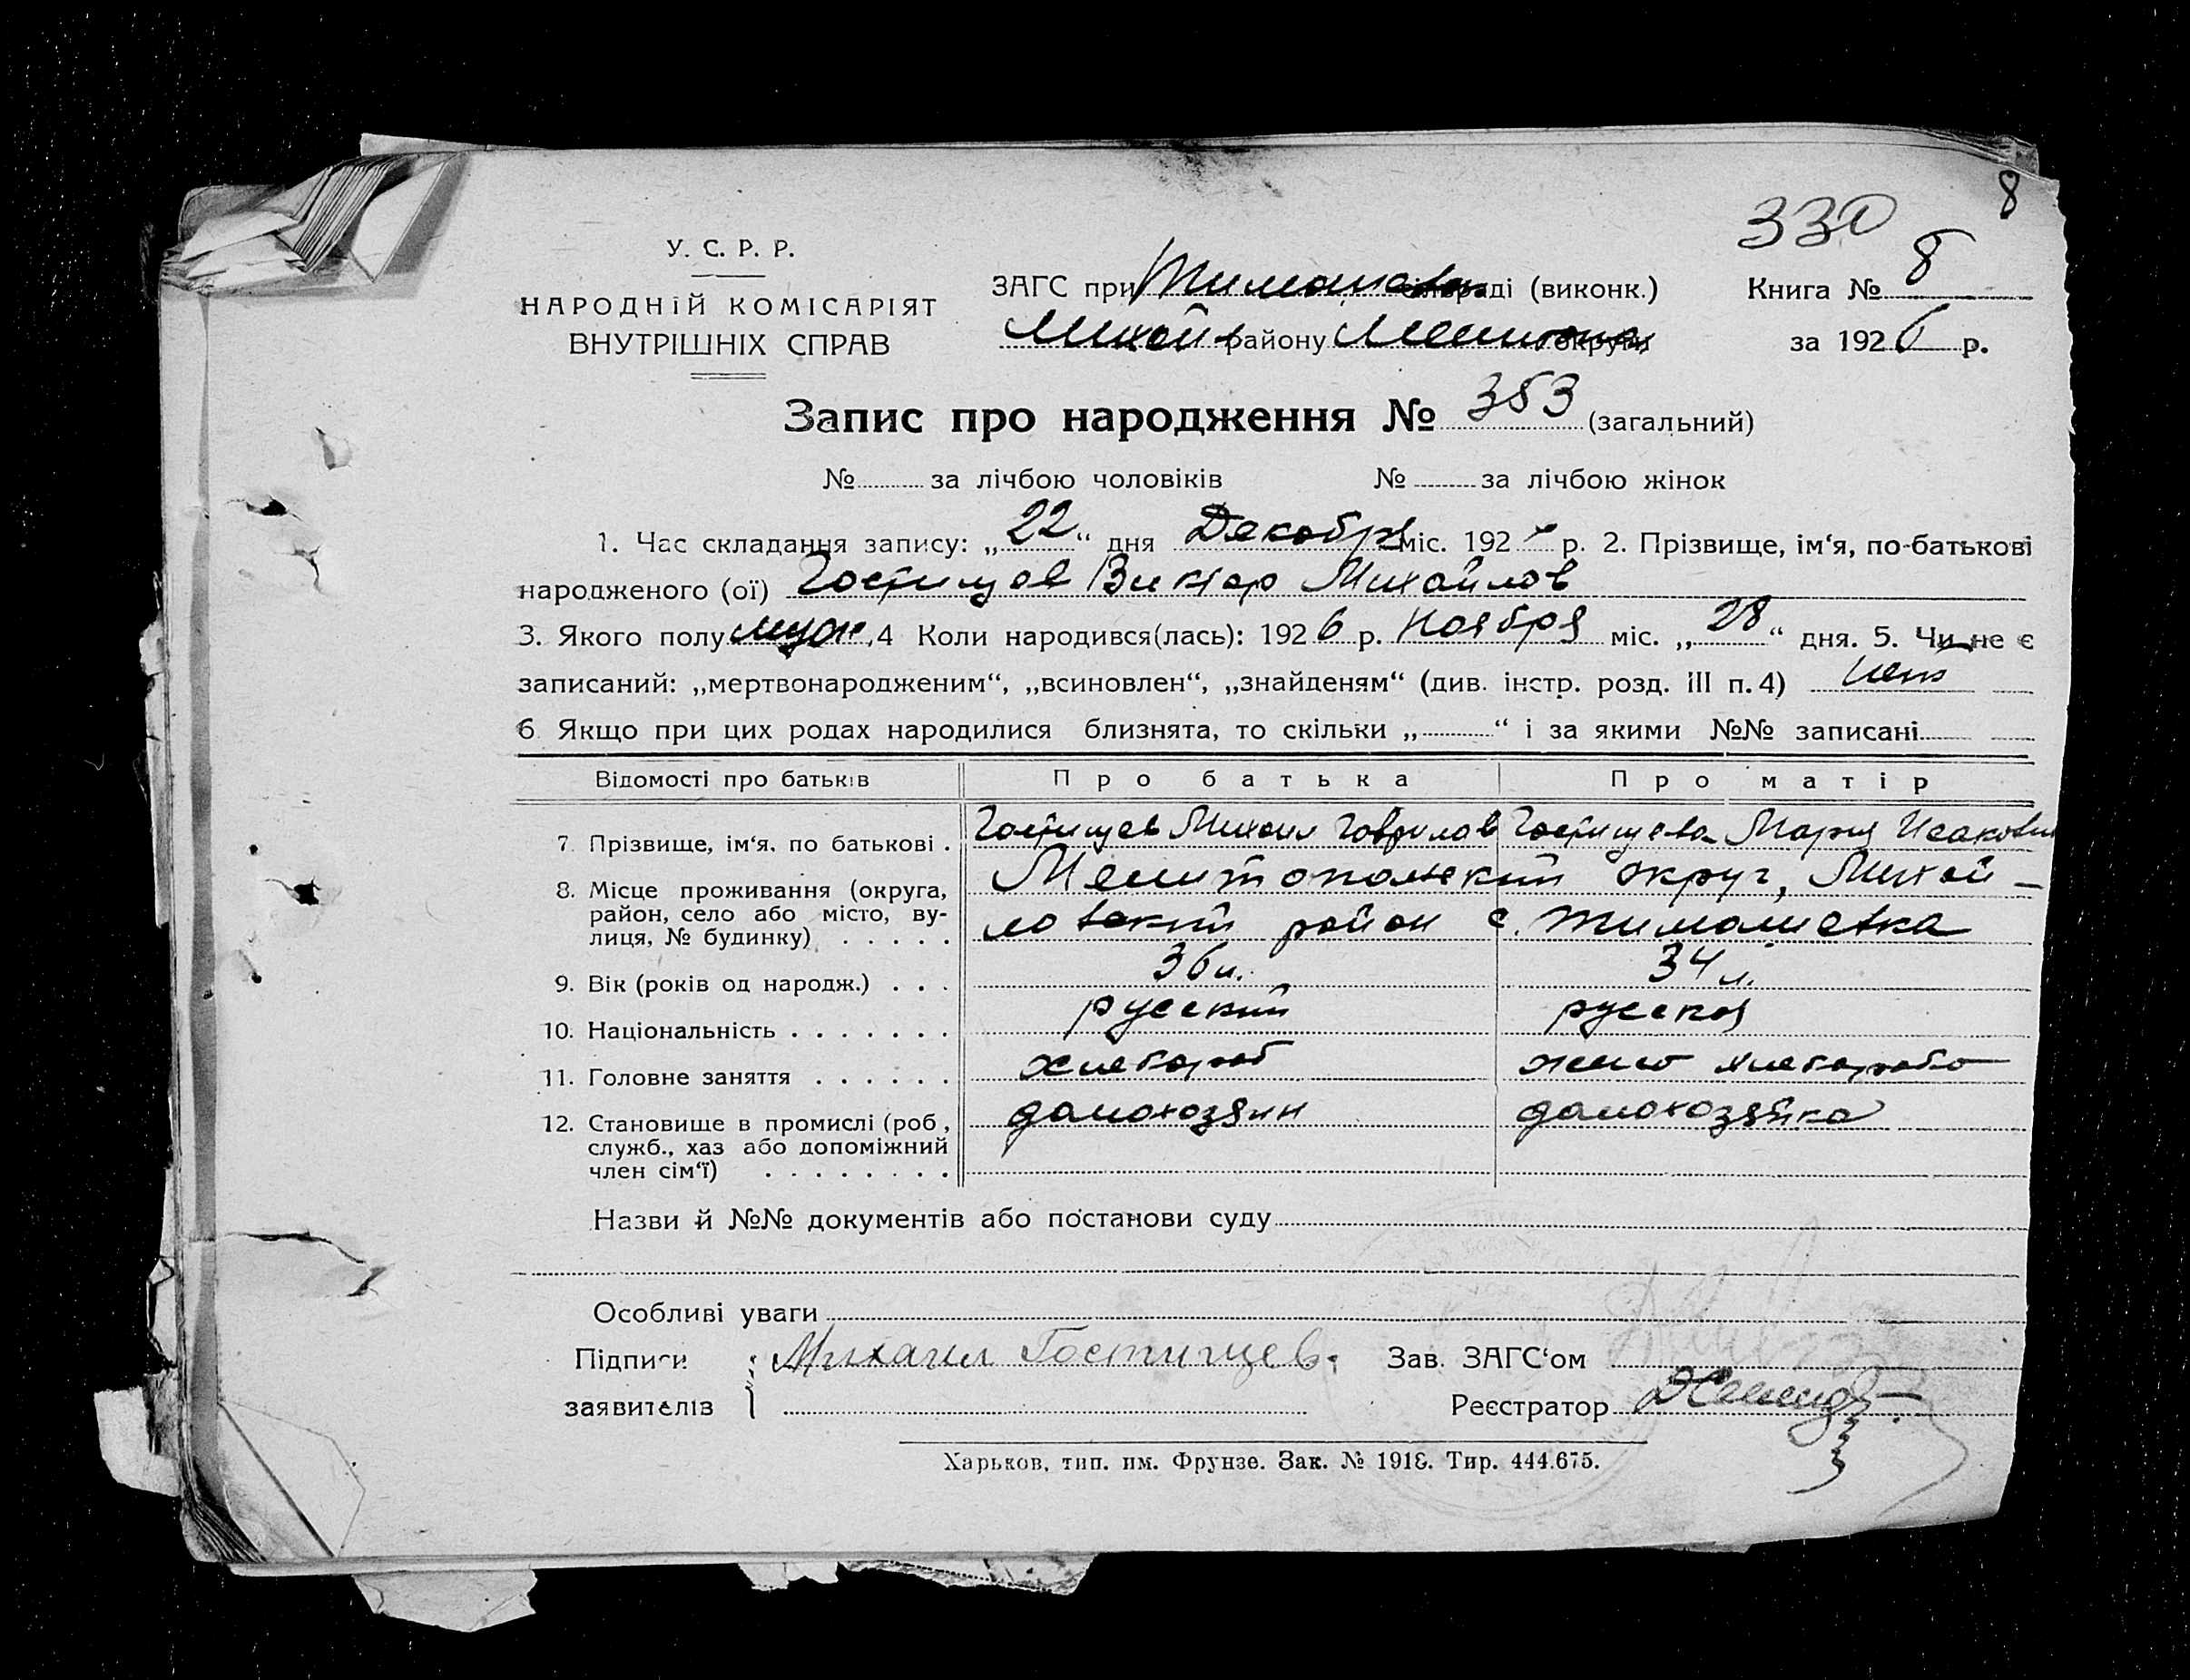 8
330
У. С. Р. Р.
НАРОДНІЙ КОМІСАРІЯТ
ВНУТРІШНІХ СПРАВ
ЗАГС при Тимошевск раді (виконк.)
Михай району Мелитоп округи
Книга № 8
за 1926 р.
Запис про народження № 353 (загальний)
№ за лічбою чоловіків № за лічбою жінок
1. Час складання запису: „22“ дня Декабря міс. 192 р. 2. Прізвище, ім‘я, по-батькові
народженого (ої) Гостищев Виктор Михайлов
3. Якого полу муж. 4 Коли народився(лась): 1926 р. Ноября міс. „28“ дня. 5. Чи не є
записаний: „мертвонародженим“, „всиновлен“, „знайденям“ (див. інстр. розд. III п. 4) нет
6 Якщо при цих родах народилися близнята, то скільки „ “ і за якими №№ записані
Відомості про батьків Про батька Про матір
7. Прізвище, ім‘я, по батькові . Гостищев Михаил Гаврилов Гостищева Мария Исаковн
8. Місце проживання (округа, Мелитопольский округ, Михай-
район, село або місто, ву- ловский район с. Тимошевка
лиця, № будинку) . . . . .
9. Вік (років од народж.) . . . 36 л. 34 л.
10. Національність . . . . . . . русский русская
11. Головне заняття . . . . . . хлебороб жена хлебороба
12. Становище в промислі (роб., домохозяин домохозяйка
служб., хаз або допоміжний
член сім‘ї) . . . . . . . .
Назви й №№ документів або постанови суду
Особливі уваги
Підписи Михаил Гостищев. Зав. ЗАГС‘ом
заявителів Реєстратор
Харьков, тип. им. Фрунзе. Зак. № 1918. Тир. 444.675.